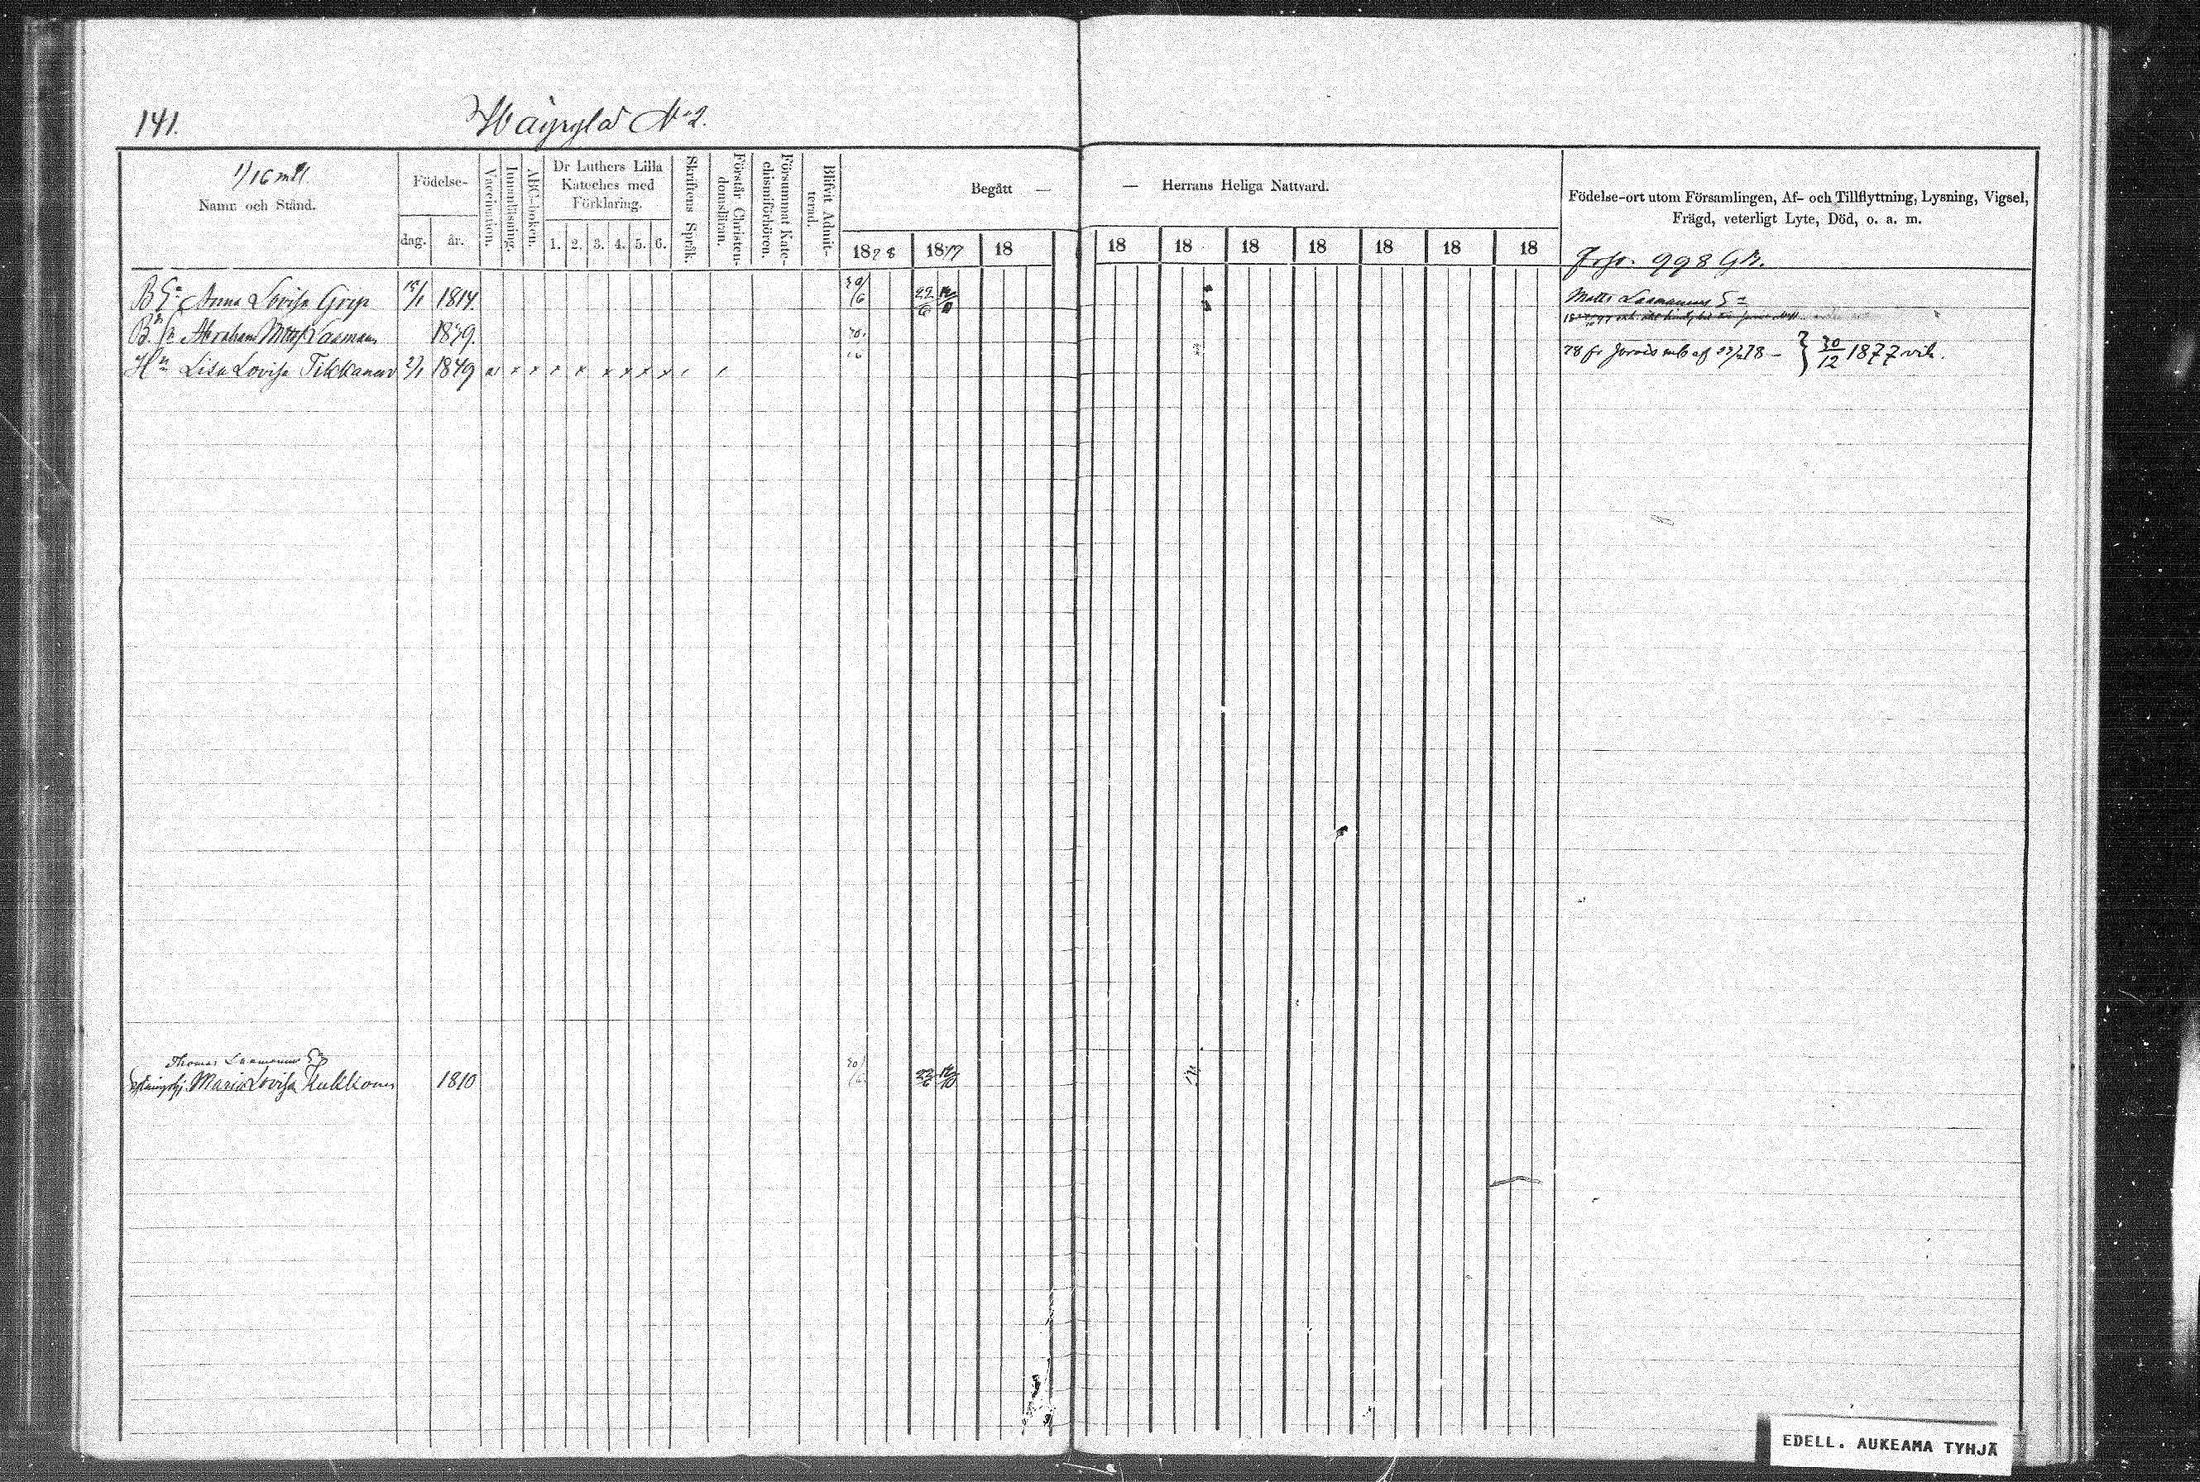 141. Wäyrylä N:o 2.
1/16 mtl.
Namn och Stånd.
Födelse-
dag. år.
Vaccination.
Innanläsning.
ABC-boken.
Dr Luthers Lilla
Kateches med
Förklaring.
1. 2. 3. 4. 5. 6.
Skriftens Språk.
Förstår Christen-
domsläran.
Försummat Kate-
chismiförhören.
Blifvit Admit-
terad.
Begått — — Herrans Heliga Nattvard.
1878 1879 18 18 18 18 18 18 18 18
Födelse-ort utom Församlingen, Af- och Tillflyttning, Lysning, Vigsel,
Frägd, veterligt Lyte, Död, o. a. m.
998 GB.
Anna Lovisa Grep 1814. 30/6 22/6
Matts Laamanens Ea
Abraham Matts. Laamanen 1849.
Hu Lisa Lovisa Tikkanen 1849 x x x x x x x x
} 30/12 1877 vik.
Thomas Laamanens Ea
Maria Lovisa Kukkonen 1810 30/6 22/6
EDELL. AUKEAMA TYHJÄ